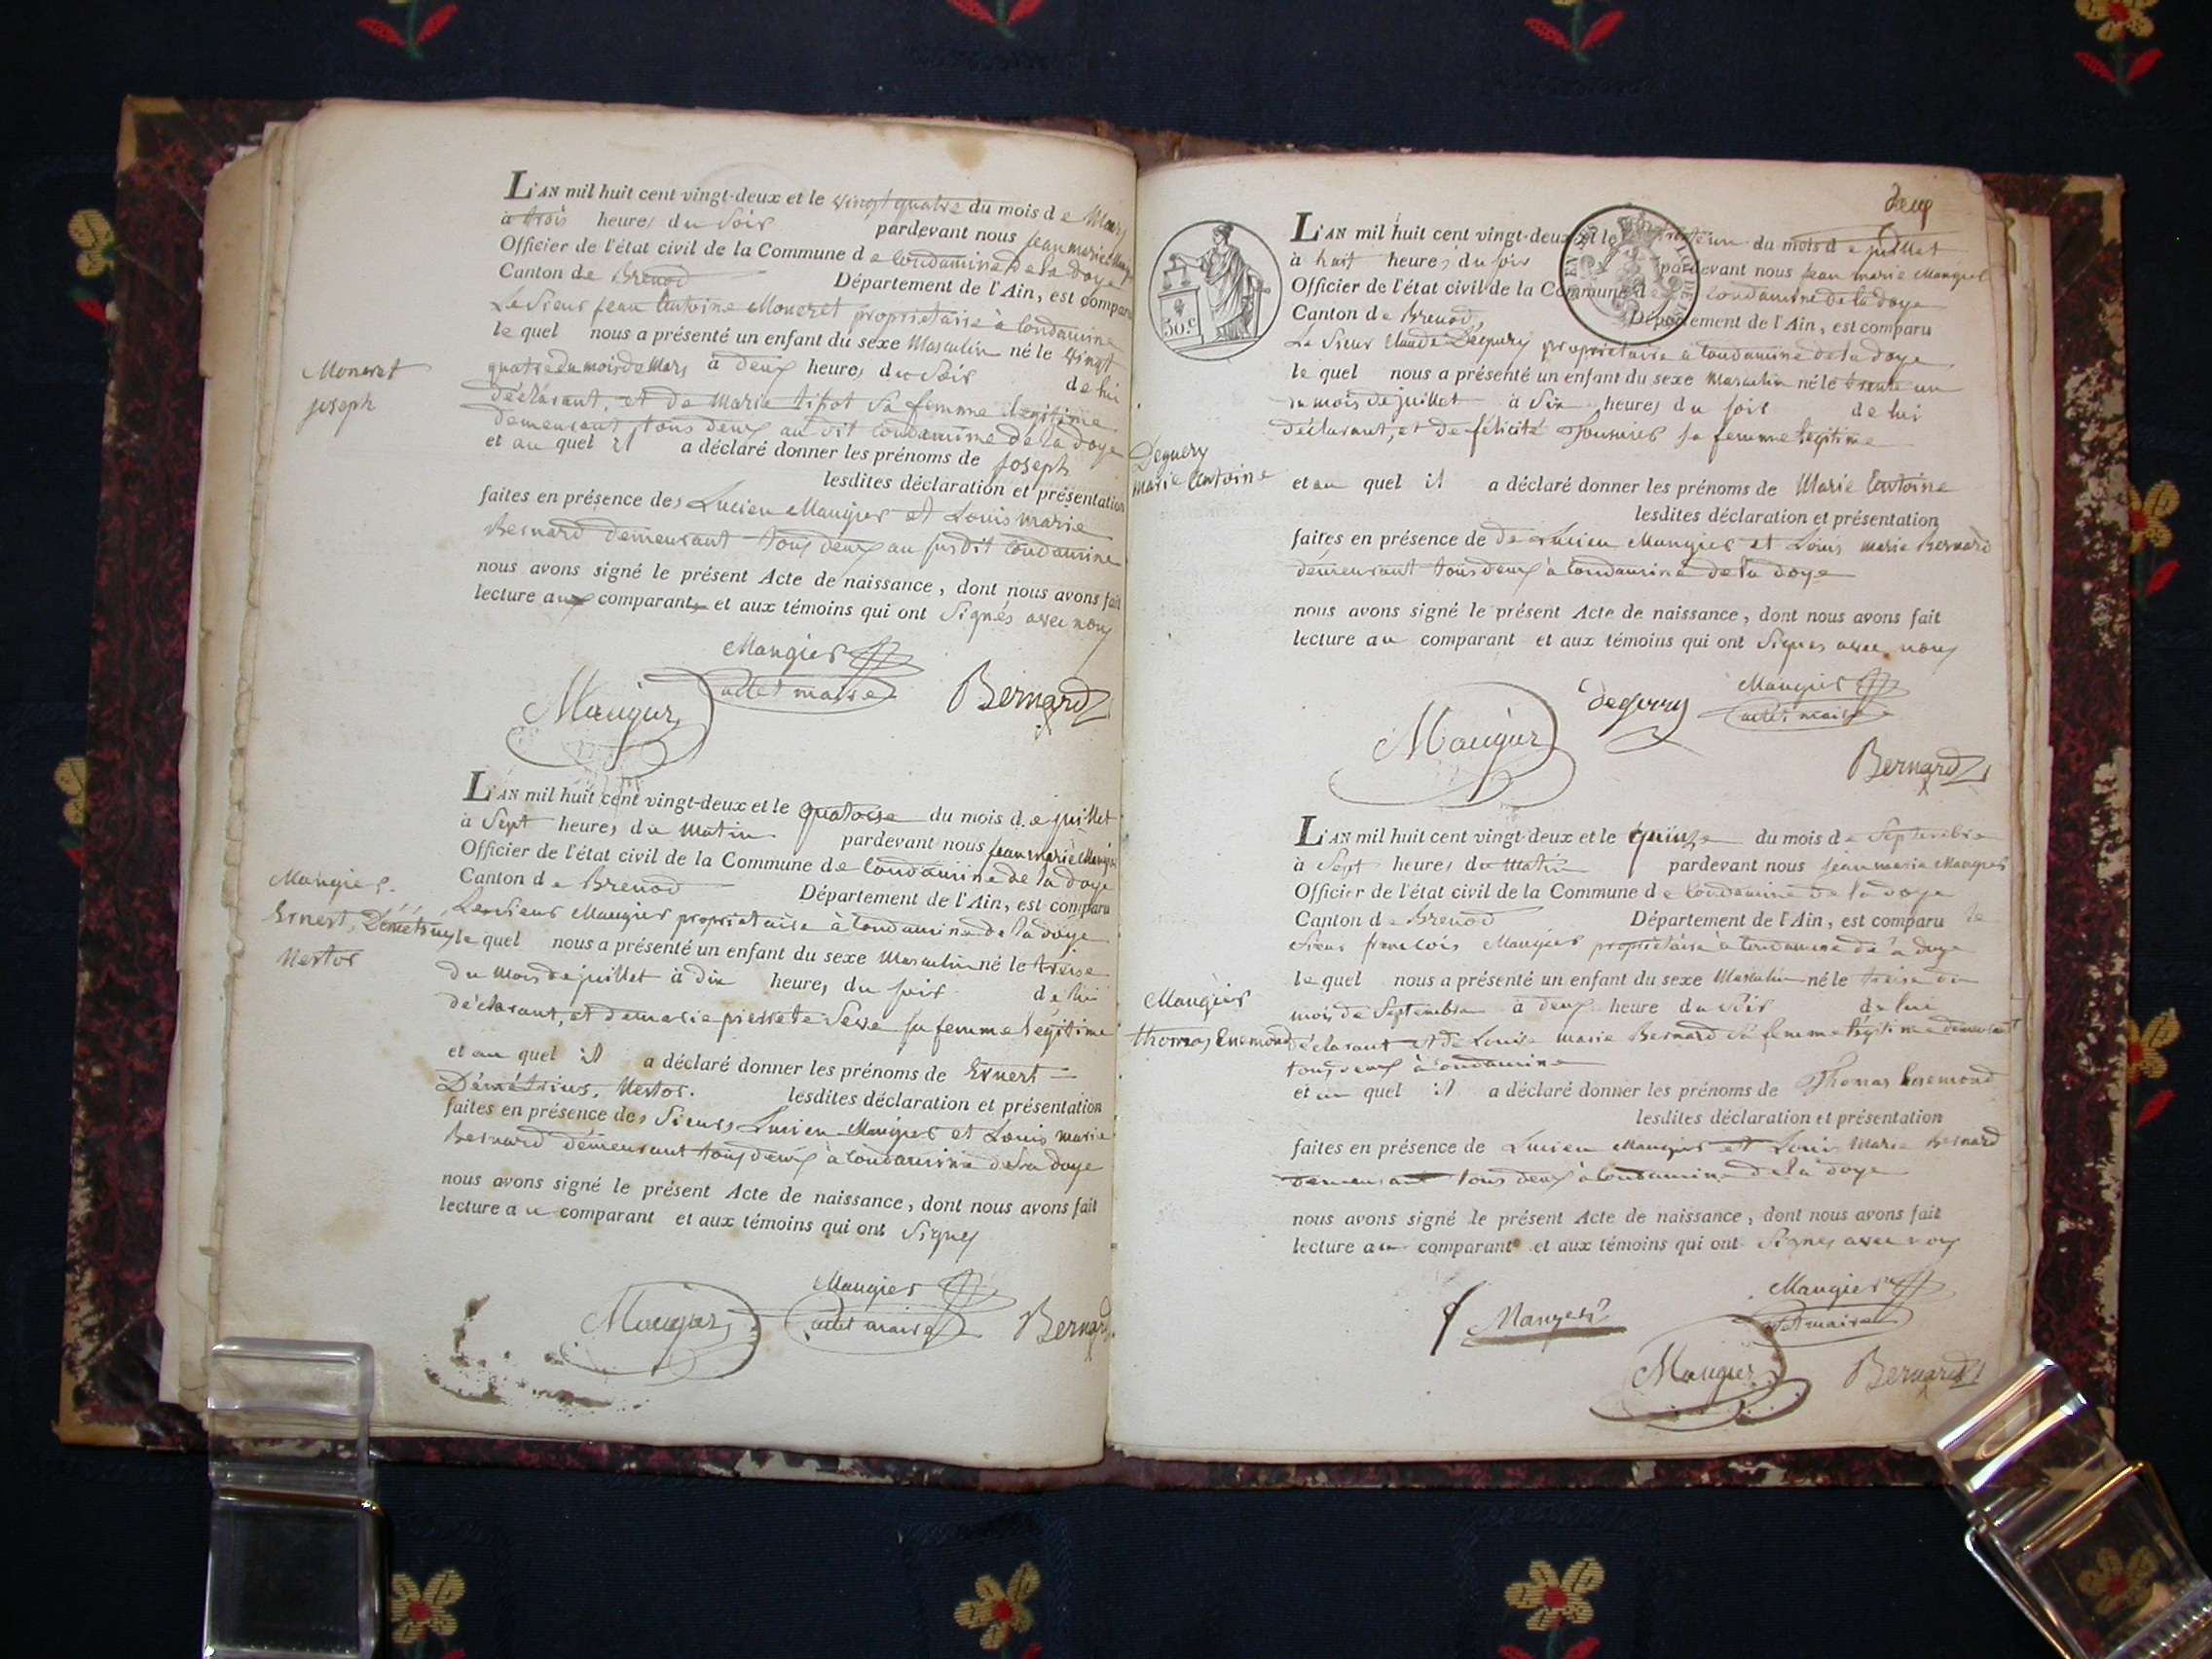 L'AN mil huit cent vingt-deux et le vingt quatre du mois de Mars
à trois heures du soir pardevant nous jean marie Maugier
Officier de l'état civil de la Commune de Condamine de la doye
Canton de Brenod Département de l'Ain, est comparu
Le Sieur jean Antoine Moneret propriétaire à Condamine
le quel nous a présenté un enfant du sexe Masculin né le vingt
quatre du mois de Mars à deux heures du soir de lui
déclarant, et de Marie tissot sa femme légitime
demeurant tous deux au dit Condamine de la doye
et au quel il a déclaré donner les prénoms de joseph
lesdites déclaration et présentation
faites en présence des Lucien Maugier et Louis marie
Bernard demeurant tous deux au susdit Condamine
nous avons signé le présent Acte de naissance, dont nous avons fait
lecture aux comparants et aux témoins qui ont signés avec nous
Moneret
joseph
Maugier
adt maire
Maugier
Bernard
L'AN mil huit cent vingt-deux et le quatorse du mois de juillet
à Sept heures du Matin pardevant nous jean marie Maugier
Officier de l'état civil de la Commune de Condamine de la doye
Canton de Brenod Département de l'Ain, est comparu
Le Sieur Maugier propriétaire à Condamine de la doye
le quel nous a présenté un enfant du sexe Masculin né le treise
du mois de juillet à dix heures du soir de lui
déclarant, et de marie pierrete sa femme légitime
et au quel il a déclaré donner les prénoms de Ernest
Démétrius, Nestor. lesdites déclaration et présentation
faites en présence des Sieurs Lucien Maugier et Louis marie
Bernard démeurant tous deux à Condamine de la doye
nous avons signé le présent Acte de naissance, dont nous avons fait
lecture au comparant et aux témoins qui ont signés
Maugier.
Ernest, Démétrius
Nestor
Maugier
adt maire
Maugier
Bernard
deux
50.c
L'AN mil huit cent vingt-deux et le trente un du mois de juillet
à huit heures du soir pardevant nous jean marie Maugier
Officier de l'état civil de la Commune de Condamine de la doye
Canton de Brenod Département de l'Ain, est comparu
Le Sieur Claude Deguery propriétaire à Condamine de la doye
le quel nous a présenté un enfant du sexe Masculin né le trente un
du mois de juillet à Six heures du soir de lui
déclarant, et de félicité sa femme légitime
et au quel il a déclaré donner les prénoms de Marie Antoine
lesdites déclaration et présentation
faites en présence de de Lucien Maugier et Louis marie Bernard
démeurant tous deux à Condamine de la doye
nous avons signé le présent Acte de naissance, dont nous avons fait
lecture au comparant et aux témoins qui ont signés avec nous
Deguery
Marie Antoine
Maugier
adt maire
deguery
Maugier
Bernard
L'AN mil huit cent vingt-deux et le quinze du mois de Septembre
à Sept heures du Matin pardevant nous jean marie Maugier
Officier de l'état civil de la Commune de Condamine de la doye
Canton de Brenod Département de l'Ain, est comparu le
Sieur françois Maugier propriétaire à Condamine de la doye
le quel nous a présenté un enfant du sexe Masculin né le treise du
mois de Septembre à deux heure du soir de lui
déclarant et de Louise marie Bernard sa femme légitime demeurant
tous deux à Condamine
et au quel il a déclaré donner les prénoms de Thomas Enemond
lesdites déclaration et présentation
faites en présence de Lucien Maugier et Louis Marie Bernard
demeurant tous deux à Condamine de la doye
nous avons signé le présent Acte de naissance, dont nous avons fait
lecture au comparant et aux témoins qui ont signés avec nous
Maugier
thomas Enemond
Maugier
adt maire
f Maugier
Maugier
Bernard